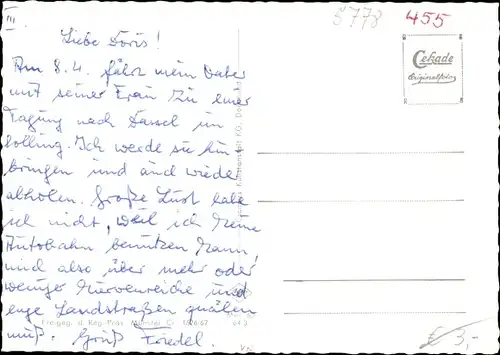 III.
5778 455
Liebe Doris!
Am 8.4. fährt mein Vater
mit seiner Frau zu einer
Tagung nach Dassel im
Solling. Ich werde sie hin
bringen und auch wieder
abholen. Große Lust habe
ich nicht, weil ich keine
Autobahn benutzen kann,
und also über mehr oder
weniger kurvenreiche und
enge Landstraßen quälen
muß. Gruß Friedel.
Cekade
Originalfoto
Kunstanstalt KG.
Freigeg. d. Reg.-Präs. Münster Nr. 1628/67
€ 3,-